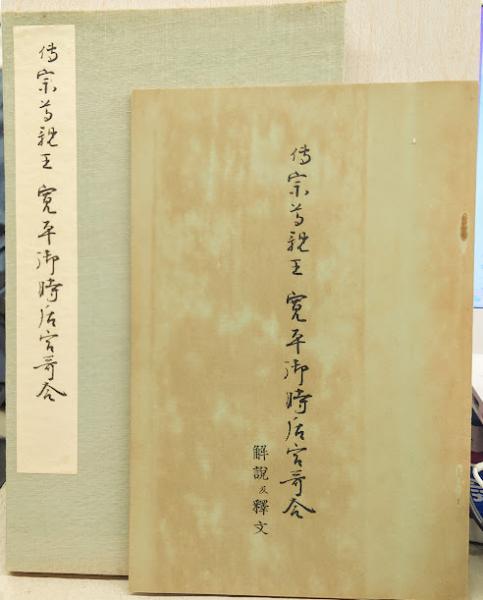 傳宗尊親王 寛平御時后宮哥合
傳宗尊親王 寛平御時后宮哥合
解說及釋文